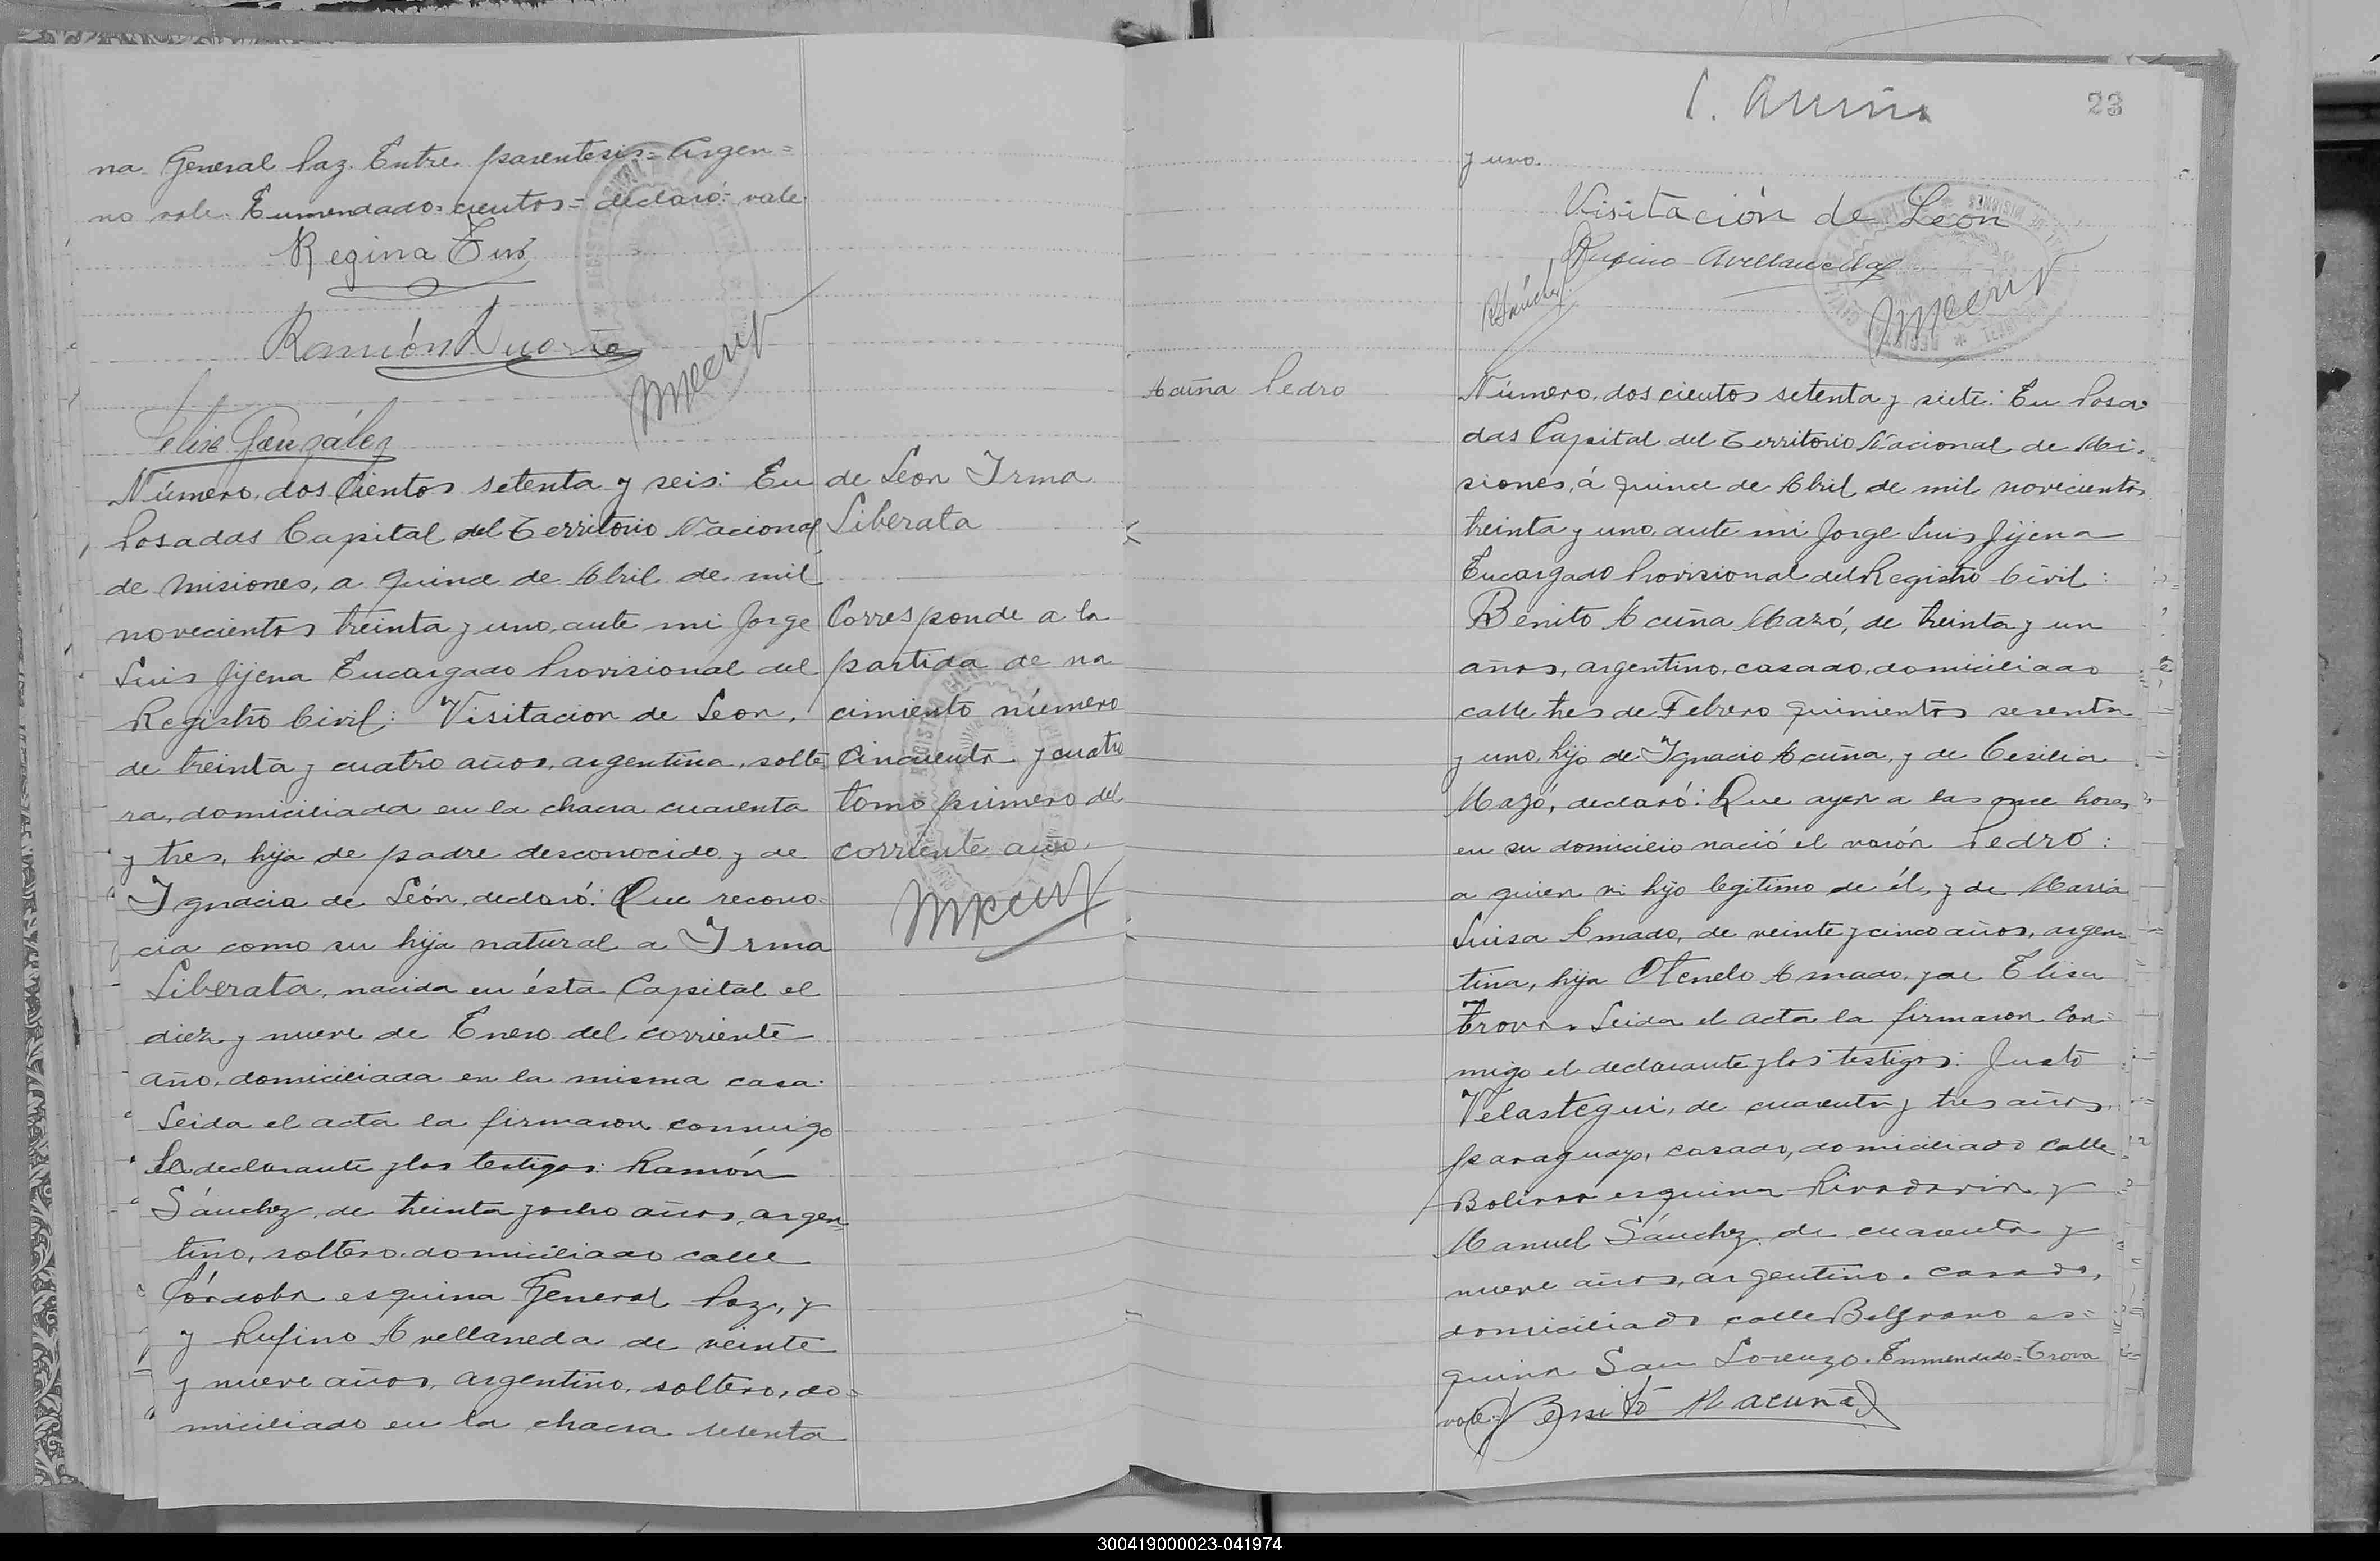 na General Paz. Entre parentesis= Argen=
no vale. Enmendado= cientos= declaró: vale
Regina
Ramón Duarte
Felix González
Número dos cientos setenta y seis: En
Posadas Capital del Territorio Nacional
de Misiones, a quince de Abril de mil
novecientos treinta y uno, ante mi Jorge
Luis Jijena Encargado Provisional del
Registro Civil: Visitacion de Leon,
de treinta y cuatro años, argentina, solte=
ra, domiciliada en la chacra cuarenta
y tres, hija de padre desconocido y de
Ignacia de León, declaró: Que recono=
cia como su hija natural a Irma
Liberata, nacida en ésta Capital el
diez y nueve de Enero del corriente
año, domiciliada en la misma casa.
Leida el acta la firmaron conmigo
la declarante y los testigos: Ramón
Sánchez, de treinta y ocho años, argen=
tino, soltero, domiciliado calle
Córdoba esquina General Paz, y
y Rufino Avellaneda de veinte
y nueve años, argentino, soltero, do=
miciliado en la chacra sesenta
de Leon Irma
Liberata
Corresponde a la
partida de na
cimiento número
cincuenta y cuatro
tomo primero del
corriente año.
23
y uno.
Visitación de Leon
Rufino Avellaneda
R Sánchez
Acuña Pedro
Número dos cientos setenta y siete: En Posa=
das Capital del Territorio Nacional de Mi=
siones, á quince de Abril de mil novecientos
treinta y uno, ante mi Jorge Luis Jijena
Encargado Provisional del Registro Civil:
Benito Acuña Mazó, de treinta y un
años, argentino, casado, domiciliado
calle tres de Febrero quinientos sesenta
y uno, hijo de Ignacio Acuña, y de Cesilia
Mazó, declaró: Que ayer a las once horas
en su domicilio nació el varón Pedro:
a quien vi hijo legitimo de él, y de Maria
Luisa Amado, de veinte y cinco años, argen=
tina, hija Otenelo Amado, y de Elisa
Trova. Leida el acta la firmaron con=
migo el declarante y los testigos: Justo
Velastegui, de cuarenta y tres años,
paraguayo, casado, domiciliado calle
Bolivar esquina Rivadavia, y
Manuel Sánchez, de cuarenta y
nueve años, argentino, casado,
domiciliado calle Belgrano es=
quina San Lorenzo. Enmendado=Trova
vale: Benito M Acuña
300419000023-041974